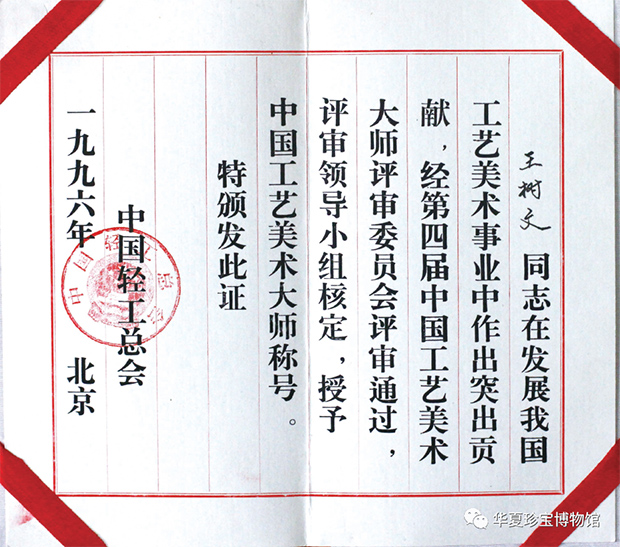 王树文 同志在发展我国
工艺美术事业中作出突出贡
献，经第四届中国工艺美术
大师评审委员会评审通过，
评审领导小组核定，授予
中国工艺美术大师称号。
特颁发此证
中国轻工总会
一九九六年 北京
中国轻工总会
华夏珍宝博物馆